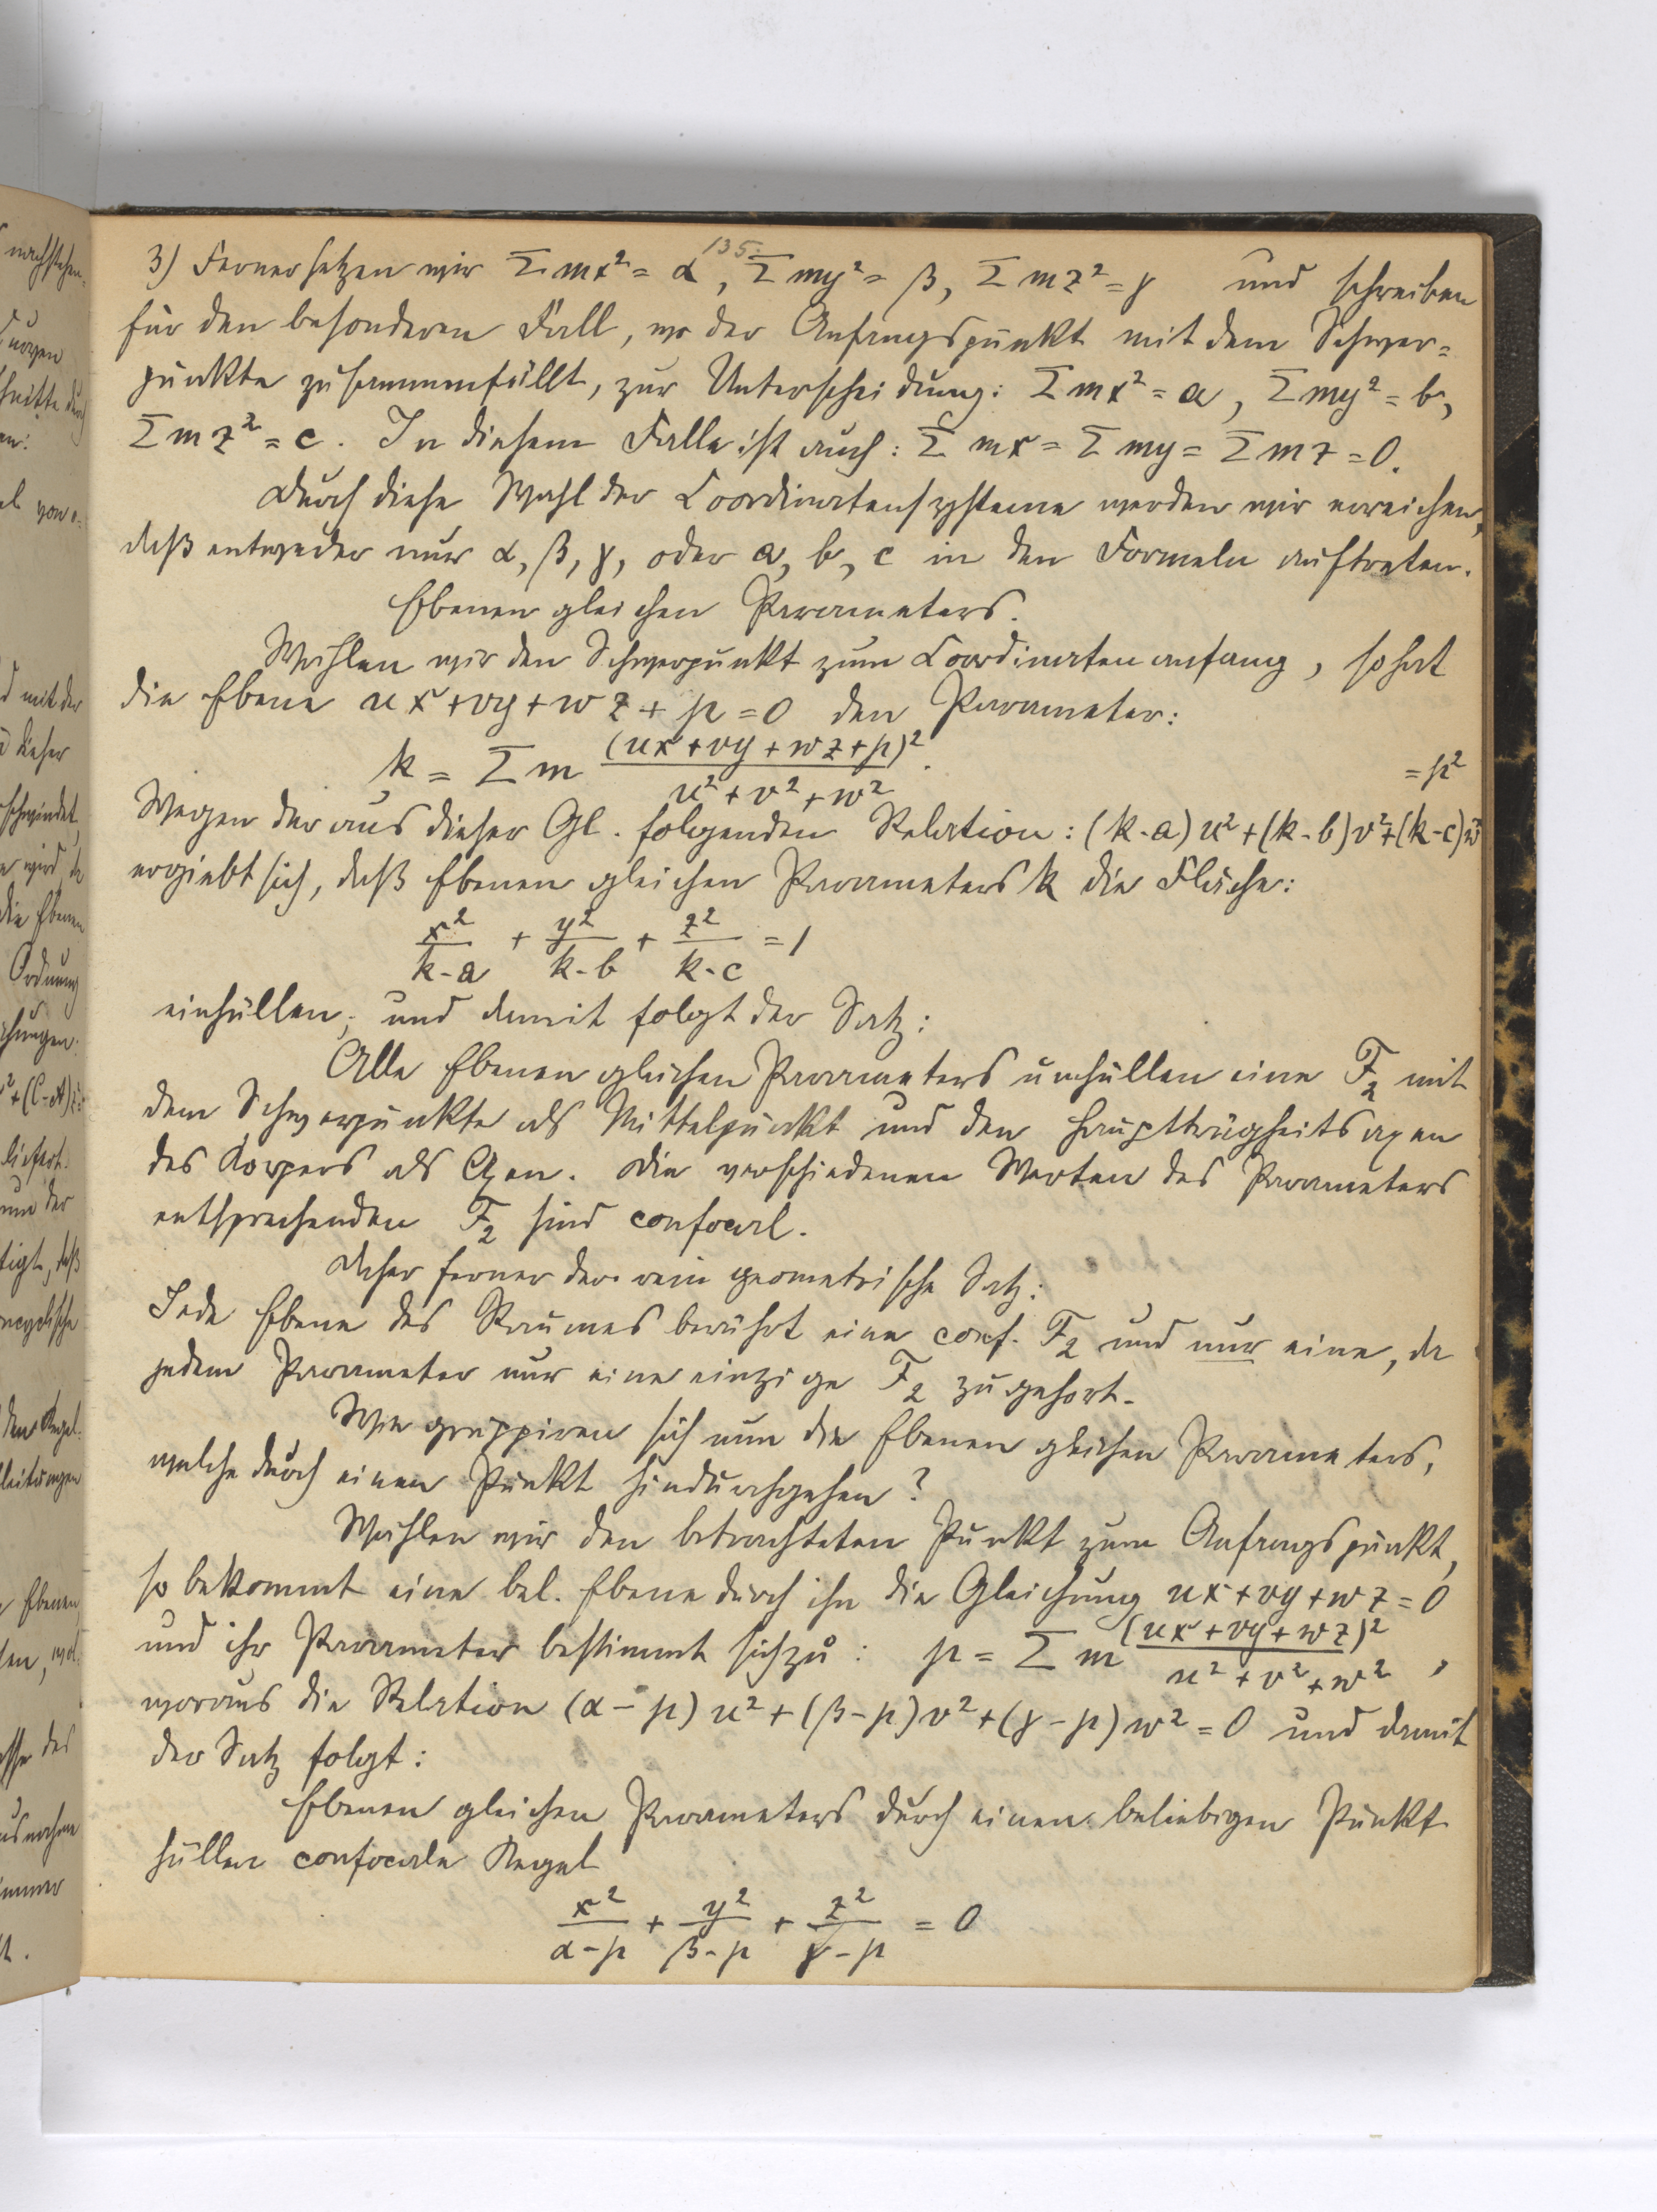 135.
3) Ferner setzen wir Σmx² = α, Σmy² = β, Σmz² = γ und schreiben
für den besonderen Fall, wo der Anfangspunkt mit dem Schwer=
punkte zusammenfällt, zur Unterscheidung: Σmx² = a, Σmy² = b,
Σmz² = c. In diesem Falle ist auch: Σmx = Σmy = Σmz = 0.
Durch diese Wahl der Coordinatensysteme werden wir erreichen,
daß entweder nur α, β, γ, oder a, b, c in den Formeln auftreten.
Ebenen gleichen Parameters.
Wählen wir den Schwerpunkt zum Coordinatenanfang, so hat
die Ebene ux + vy + wz + p = 0 den Parameter:
k = Σm (ux + vy + wz + p)² / (u² + v² + w²).
Wegen der aus dieser Gl. folgenden Relation: (k-a)u² + (k-b)v² + (k-c)w² = p²
ergiebt sich, daß Ebenen gleichen Parameters k die Fläche:
x²/(k-a) + y²/(k-b) + z²/(k-c) = 1
einhüllen, und damit folgt der Satz:
Alle Ebenen gleichen Parameters umhüllen eine F₂ mit
dem Schwerpunkte als Mittelpunkt und den Hauptträgheitsaxen
des Körpers als Axen. Die verschiedenen Werten des Parameters
entsprechenden F₂ sind confocal.
Daher ferner der rein geometrische Satz:
Jede Ebene des Raumes berührt eine conf. F₂ und nur eine, da
jedem Parameter nur eine einzige F₂ zugehört.
Wie gruppiren sich nun die Ebenen gleichen Parameters,
welche durch einen Punkt hindurchgehen?
Wählen wir den betrachteten Punkt zum Anfangspunkt,
so bekommt eine bel. Ebene durch ihn die Gleichung ux + vy + wz = 0
und ihr Parameter bestimmt sich zu: μ = Σm (ux + vy + wz)² / (u² + v² + w²),
woraus die Relation (α-μ)u² + (β-μ)v² + (γ-μ)w² = 0 und damit
der Satz folgt:
Ebenen gleichen Parameters durch einen beliebigen Punkt
hüllen confocale Kegel
x²/(α-μ) + y²/(β-μ) + z²/(γ-μ) = 0